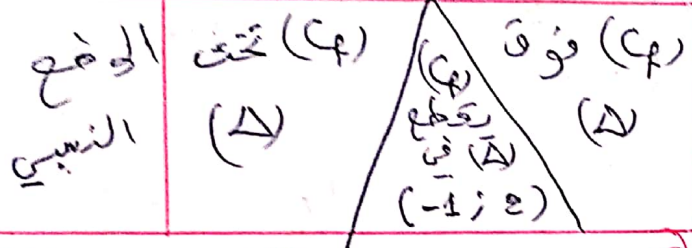 الوضع
النسبي
(Cf) تحت
(Δ)
(Cf)
يقطع
(Δ) في
(-1 ; 2)
(Cf) فوق
(Δ)